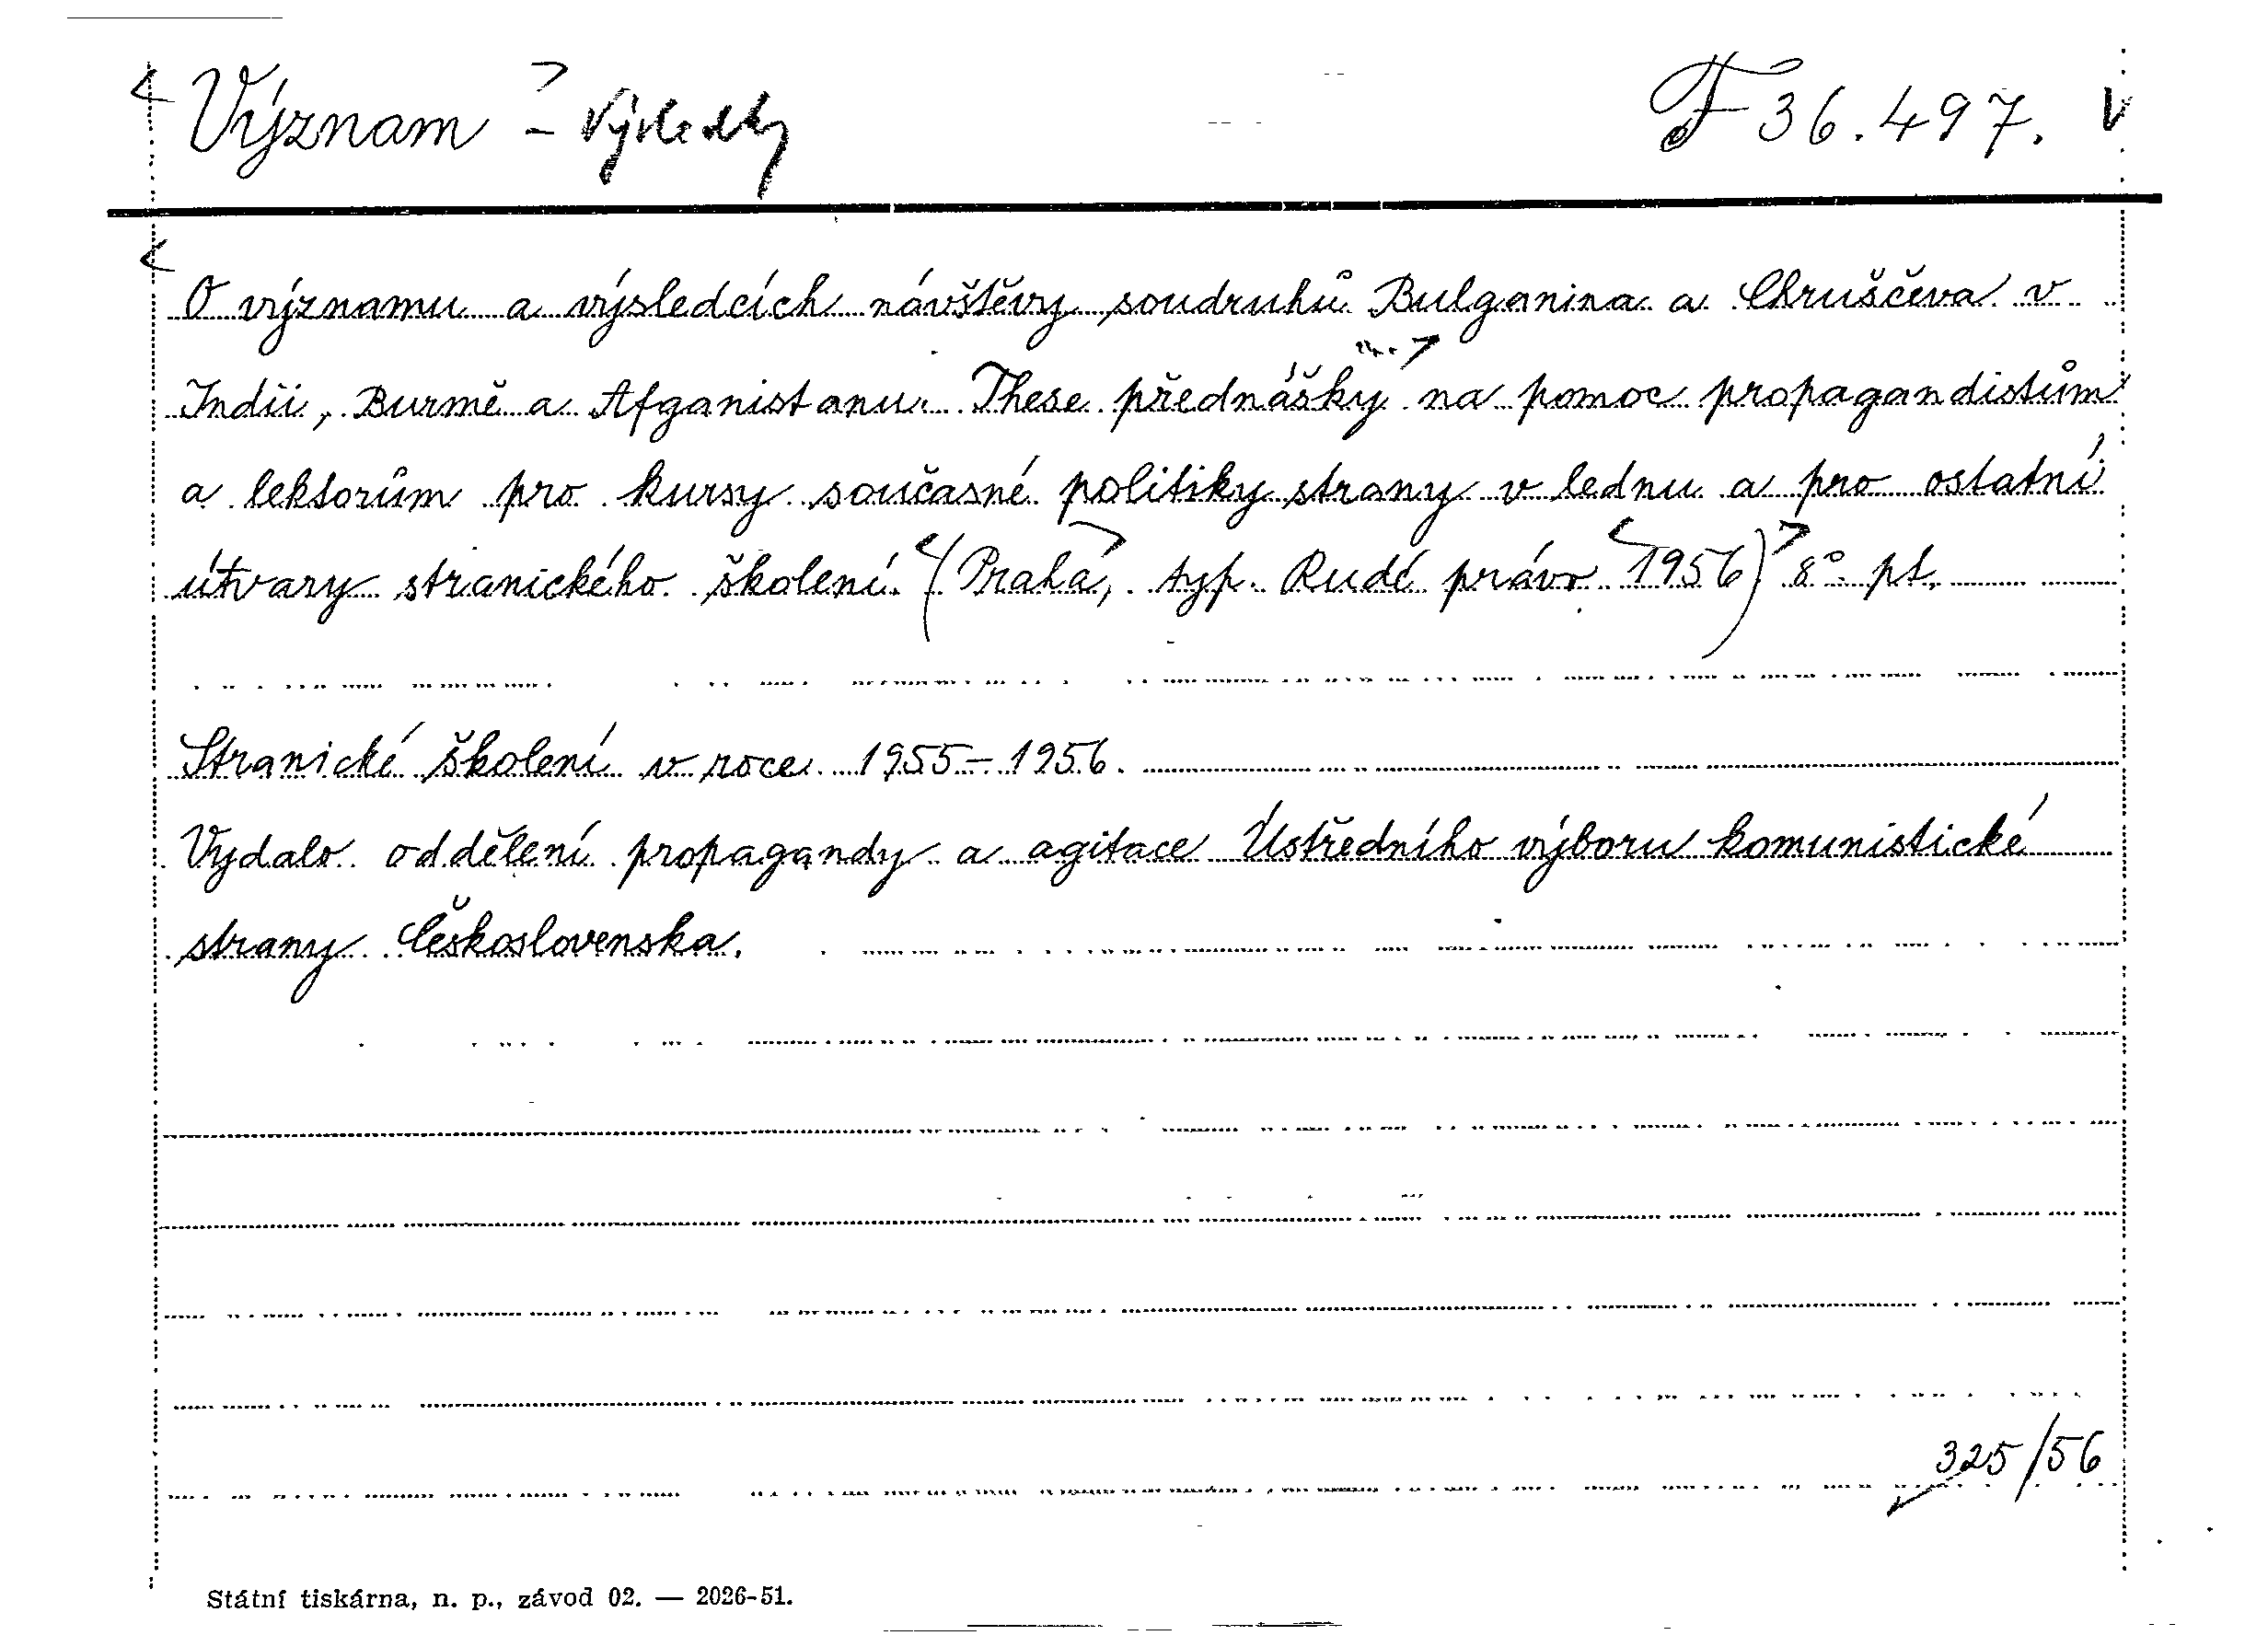 Význam - Výsledky F 36.497. V
O významu a výsledcích návštěvy soudruhů Bulganina a Chruščeva v
Indii, Burmě a Afganistanu. These přednášky na pomoc propagandistům
a lektorům pro kursy současné politiky strany v lednu a pro ostatní
útvary stranického školení. (Praha, typ. Rudé právo 1956). 8° pt.
Stranické školení v roce 1955-1956.
Vydalo oddělení propagandy a agitace Ústředního výboru komunistické
strany Československa.
325/56
Státní tiskárna, n. p., závod 02. — 2026-51.